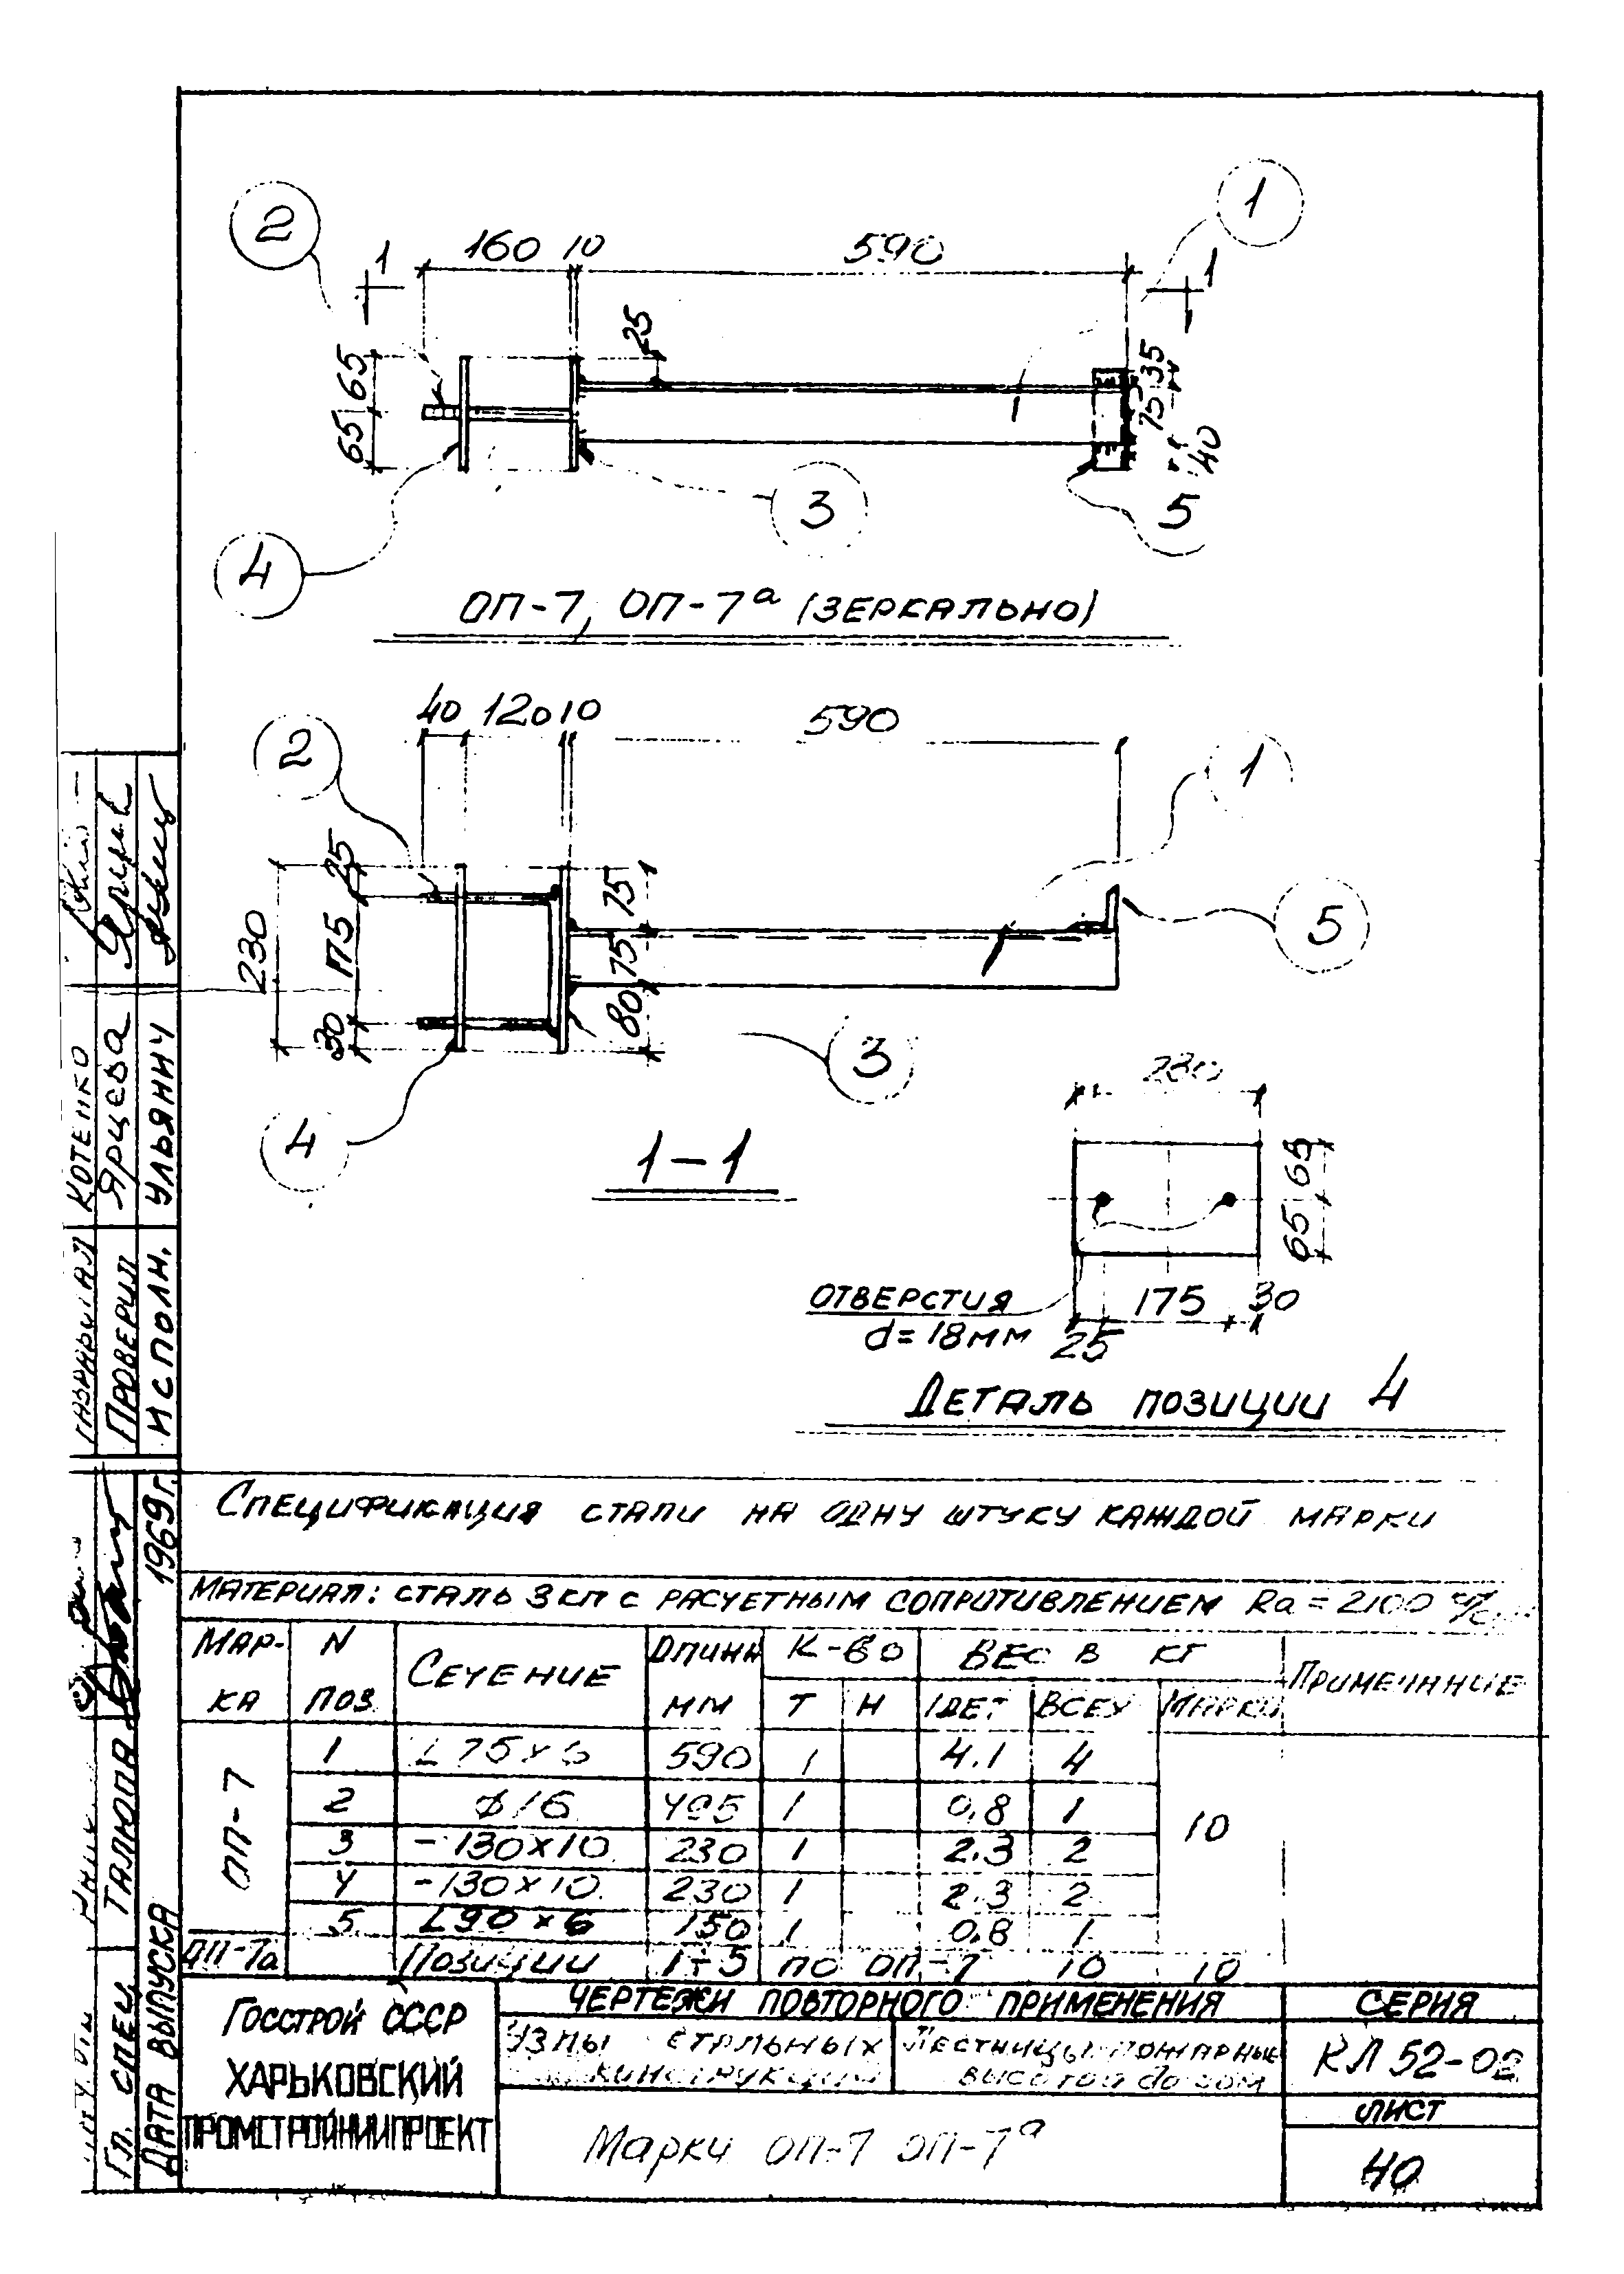 2
1
160 10 590
1
1
25
65
65
35
75
40
3
5
4
ОП-7, ОП-7а (ЗЕРКАЛЬНО)
40 120 10 590
2
1
25
175
30
230
75
75
80
5
3
4
1-1
230
65
65
ОТВЕРСТИЯ
d=18мм
25
175
30
ДЕТАЛЬ ПОЗИЦИИ 4
СПЕЦИФИКАЦИЯ СТАЛИ НА ОДНУ ШТУКУ КАЖДОЙ МАРКИ
МАТЕРИАЛ: СТАЛЬ 3 КП С РАСЧЕТНЫМ СОПРОТИВЛЕНИЕМ Rа = 2100
МАР-КА N ПОЗ. СЕЧЕНИЕ ДЛИНА ММ К-ВО Т Н ВЕС В КГ 1ДЕТ ВСЕХ МАРКИ ПРИМЕЧАНИЕ
ОП-7 1 L75×6 590 1 4.1 4 10
2 ϕ16 495 1 0,8 1
3 -130×10 230 1 2.3 2
4 -130×10 230 1 2.3 2
5 L90×6 150 1 0,8 1
ОП-7а ПОЗИЦИИ 1÷5 ПО ОП-7 10 10
ГОССТРОЙ СССР
ХАРЬКОВСКИЙ
ПРОМСТРОЙНИИПРОЕКТ
ЧЕРТЕЖИ ПОВТОРНОГО ПРИМЕНЕНИЯ
УЗЛЫ СТАЛЬНЫХ
КОНСТРУКЦИЙ
ЛЕСТНИЦЫ ПОЖАРНЫЕ
ВЫСОТОЙ ДО 30М
Марки ОП-7 ОП-7а
СЕРИЯ
КЛ 52-02
ЛИСТ
40
КОТЕНКО
ПРОВЕРИЛ ЯРЦЕВА
ИСПОЛН. УЛЬЯНИЧ
ГЛ. СПЕЦ ТАЛЮПА
ДАТА ВЫПУСКА 1969г.